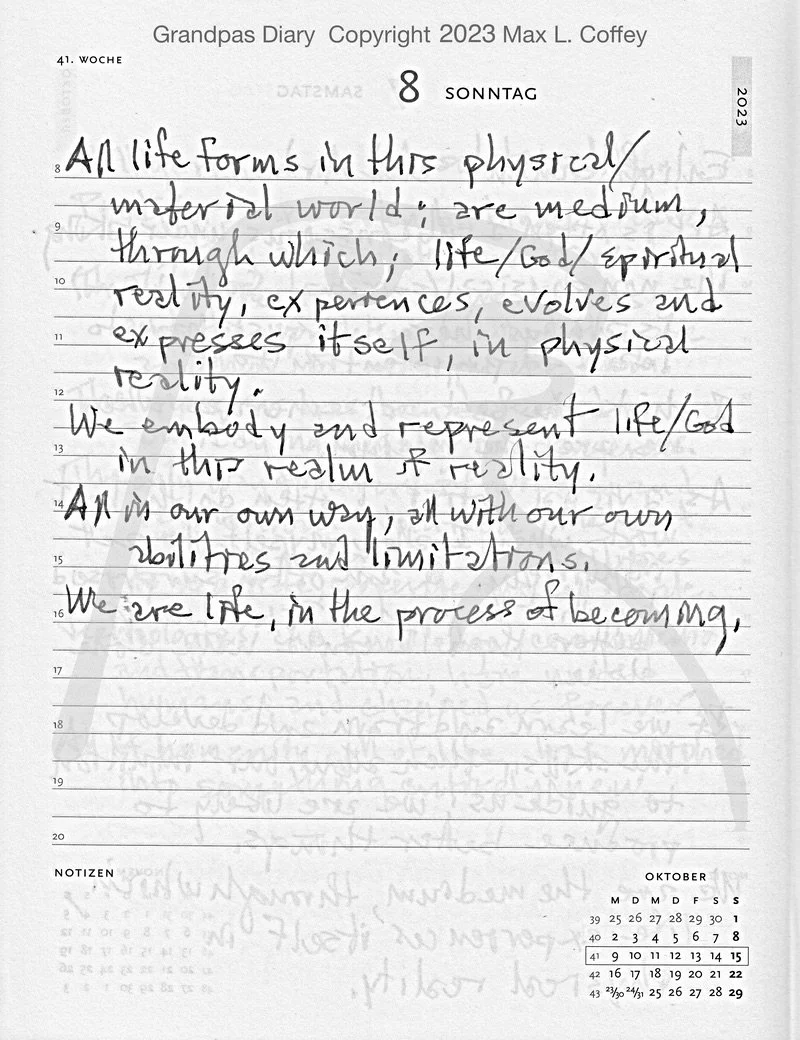 Grandpas Diary Copyright 2023 Max L. Coffey
41. WOCHE
8 SONNTAG
2023
8 All life forms in this physical/
material world; are medium,
9 through which; life/God/spiritual
10 reality, experiences, evolves and
11 expresses itself, in physical
12 reality.
We embody and represent life/God
13 in this realm of reality.
14 All in our own way, all with our own
15 abilities and limitations.
16 We are life, in the process of becoming,
17
18
19
20
NOTIZEN
OKTOBER
M D M D F S S
39 25 26 27 28 29 30 1
40 2 3 4 5 6 7 8
41 9 10 11 12 13 14 15
42 16 17 18 19 20 21 22
43 23/30 24/31 25 26 27 28 29